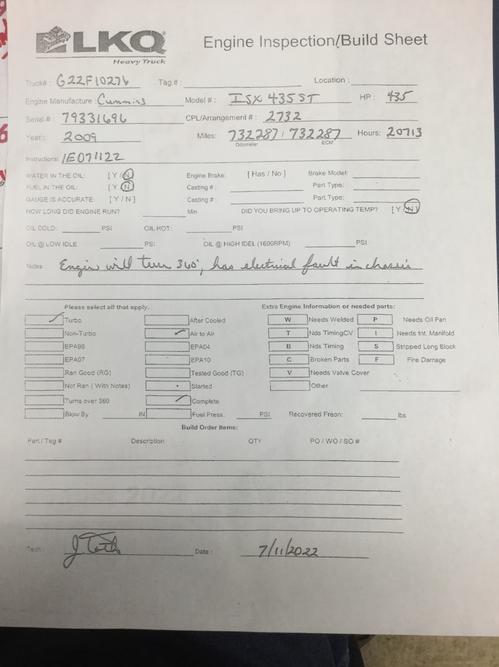 LKQ
Heavy Truck
Engine Inspection/Build Sheet
Truck#: G22F10276 Tag #: Location:
Engine Manufacture: Cummins Model #: ISX 435 ST HP: 435
Serial #: 79331696 CPL/Arrangement #: 2732
Year: 2009 Miles: 732287 / 732287 Hours: 20713
Odometer ECM
Instructions: 1E071122
WATER IN THE OIL: [ Y / N ] Engine Brake: [ Has / No ] Brake Model:
FUEL IN THE OIL: [ Y / N ] Casting #: Part Type:
GAUGE IS ACCURATE: [ Y / N ] Casting #: Part Type:
HOW LONG DID ENGINE RUN? Min DID YOU BRING UP TO OPERATING TEMP? [ Y / N ]
OIL COLD: PSI OIL HOT: PSI
OIL @ LOW IDLE PSI OIL @ HIGH IDEL (1600RPM) PSI
Notes: Engin will turn 360°, has electrical fault in chassis
Please select all that apply. Extra Engine Information or needed parts:
Turbo After Cooled W Needs Welded P Needs Oil Pan
Non-Turbo Air to Air T Nds TimingCV I Needs Int. Manifold
EPA98 EPA04 B Nds Timing S Stripped Long Block
EPA07 EPA10 C Broken Parts F Fire Damage
Ran Good (RG) Tested Good (TG) V Needs Valve Cover
Not Ran ( With Notes) Started Other
Turns over 360 Complete
Blow By IN Fuel Press. PSI Recovered Freon: lbs
Build Order Items:
Part / Tag # Description QTY PO / WO / SO #
Tech: J Date: 7/11/2022